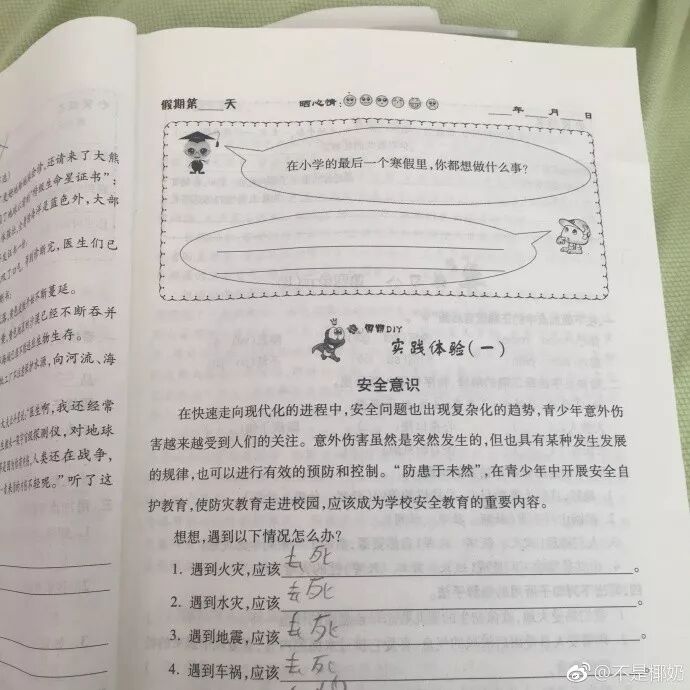 还请来了大熊
蓝色外，大部
医生们已
不断蔓延。
已经不断吞并
生物生存。
向河流、海
我还经常
对地球
人类还在战争，
听了这
假期第____天 晒心情： ____年____月____日
在小学的最后一个寒假里，你都想做什么事？
DIY
实践体验(一)
安全意识
在快速走向现代化的进程中，安全问题也出现复杂化的趋势，青少年意外伤
害越来越受到人们的关注。意外伤害虽然是突然发生的，但也具有某种发生发展
的规律，也可以进行有效的预防和控制。“防患于未然”，在青少年中开展安全自
护教育，使防灾教育走进校园，应该成为学校安全教育的重要内容。
想想，遇到以下情况怎么办？
1. 遇到火灾，应该去死。
2. 遇到水灾，应该去死。
3. 遇到地震，应该去死。
4. 遇到车祸，应该去死
@不是椰奶